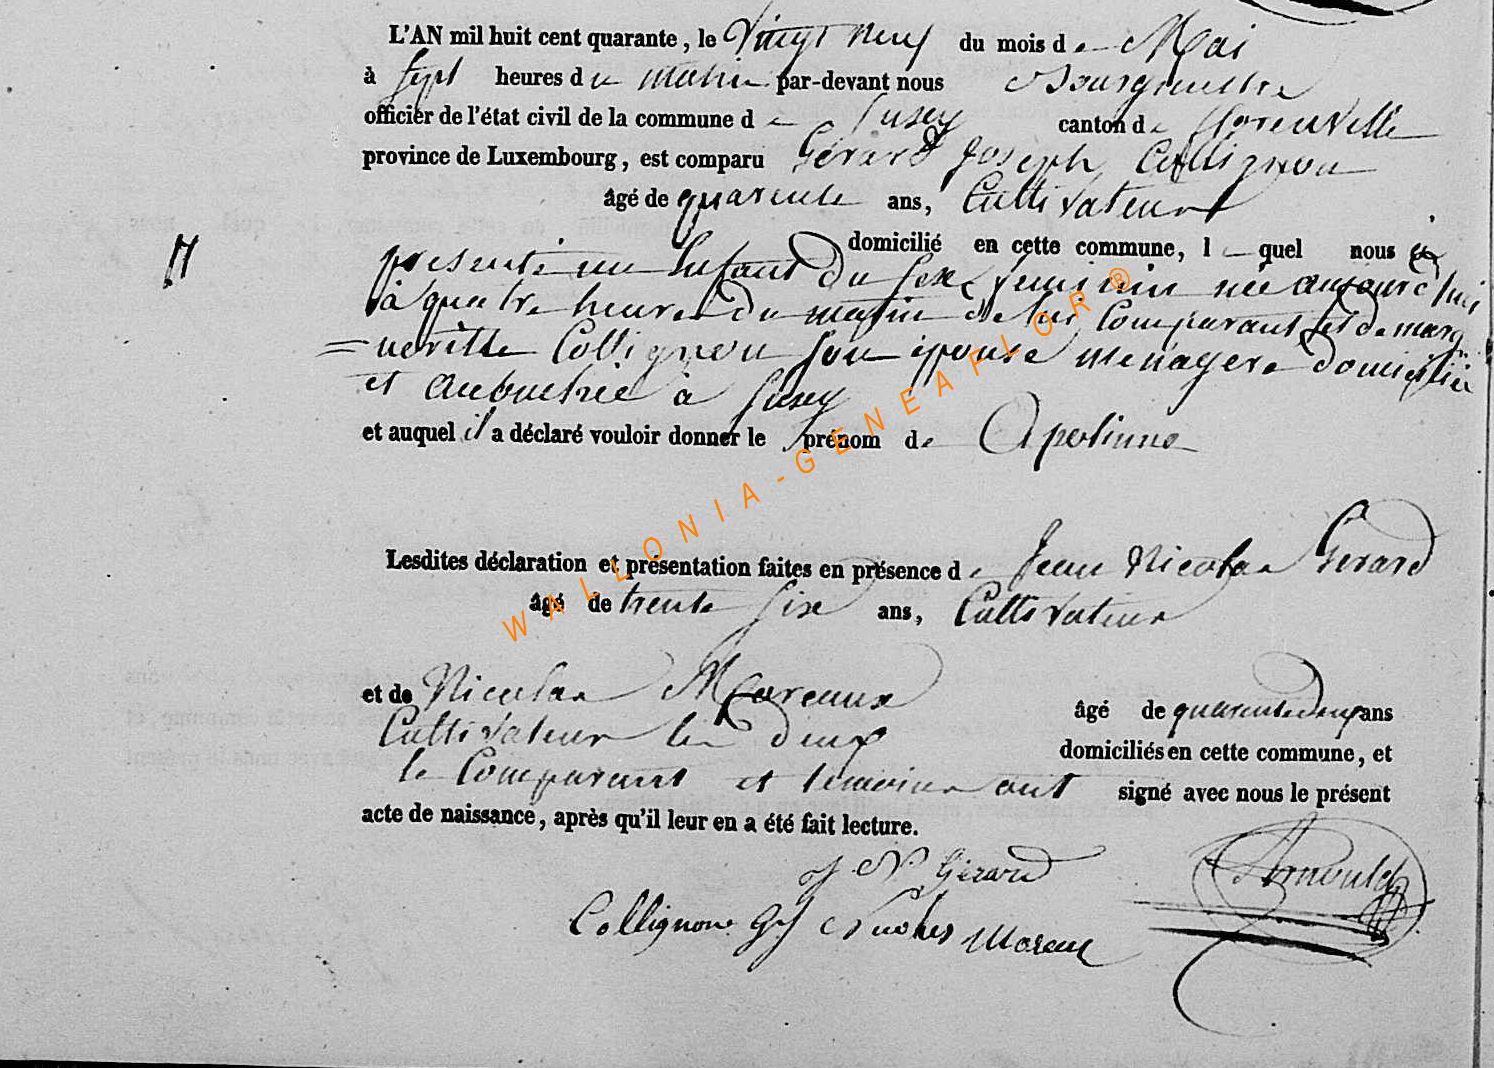 L'AN mil huit cent quarante, le Vingt neuf du mois de Mai
à sept heures du matin par-devant nous Bourgmestre
officier de l'état civil de la commune de canton de florenville
province de Luxembourg, est comparu Gérard Joseph Collignon
âgé de quarente ans, Cultivateur
domicilié en cette commune, lequel nous a
presenté un Enfant du sexe feminin née aujourd'hui
à quatre heures du matin de lui Comparant et de marg
=ueritte Collignon son épouse menagere domicilié
et à
et auquel il a déclaré vouloir donner le prénom de Apolinne
Lesdites déclaration et présentation faites en présence de Jean Nicolas Gerard
âgé de trente six ans, Cultivateur
et de Nicolas Moreaux
âgé de quarente deux ans
Cultivateur les deux domiciliés en cette commune, et
le Comparant et temoins ont signé avec nous le présent
acte de naissance, après qu'il leur en a été fait lecture.
J. N. Gérard
Arnould
Collignon Gd Nicolas Moreau
WALLONIA-GENEAFLOR®